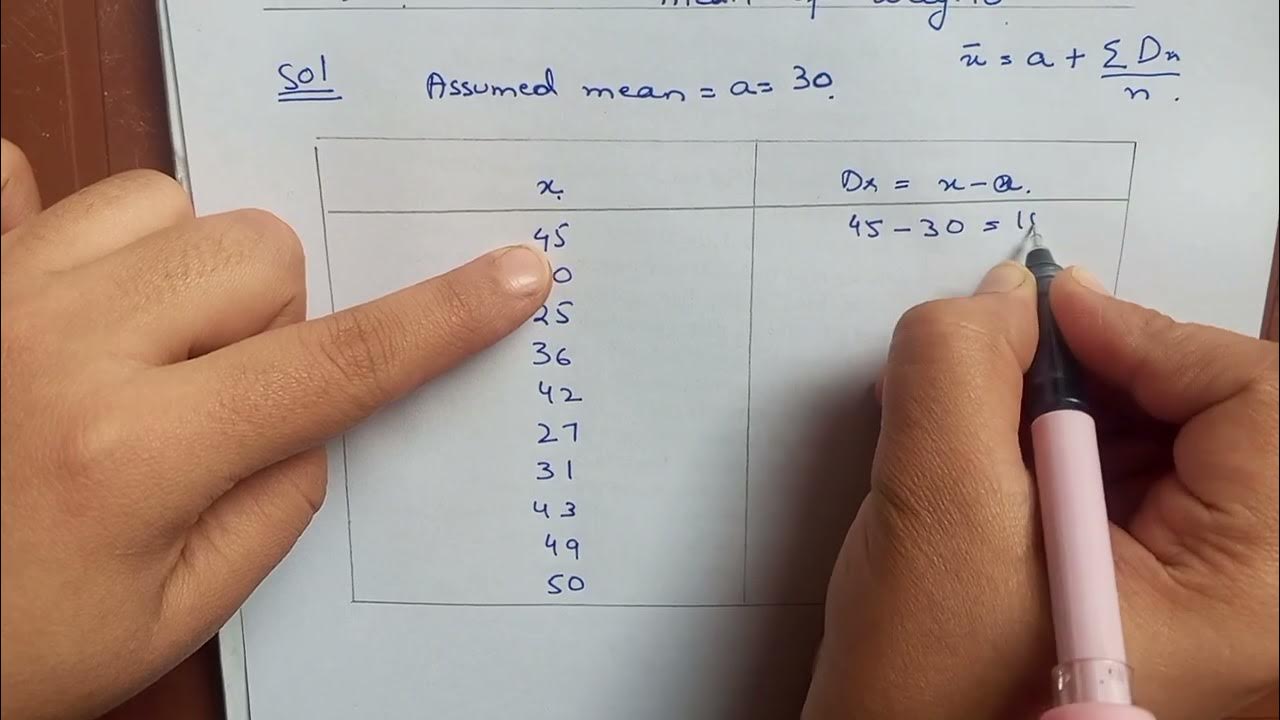 mean of
Sol Assumed mean = a = 30.
x̄ = a + Σ Dx / n .
x. Dx = x - a.
45 45 - 30 = 15
0
25
36
42
27
31
43
49
50